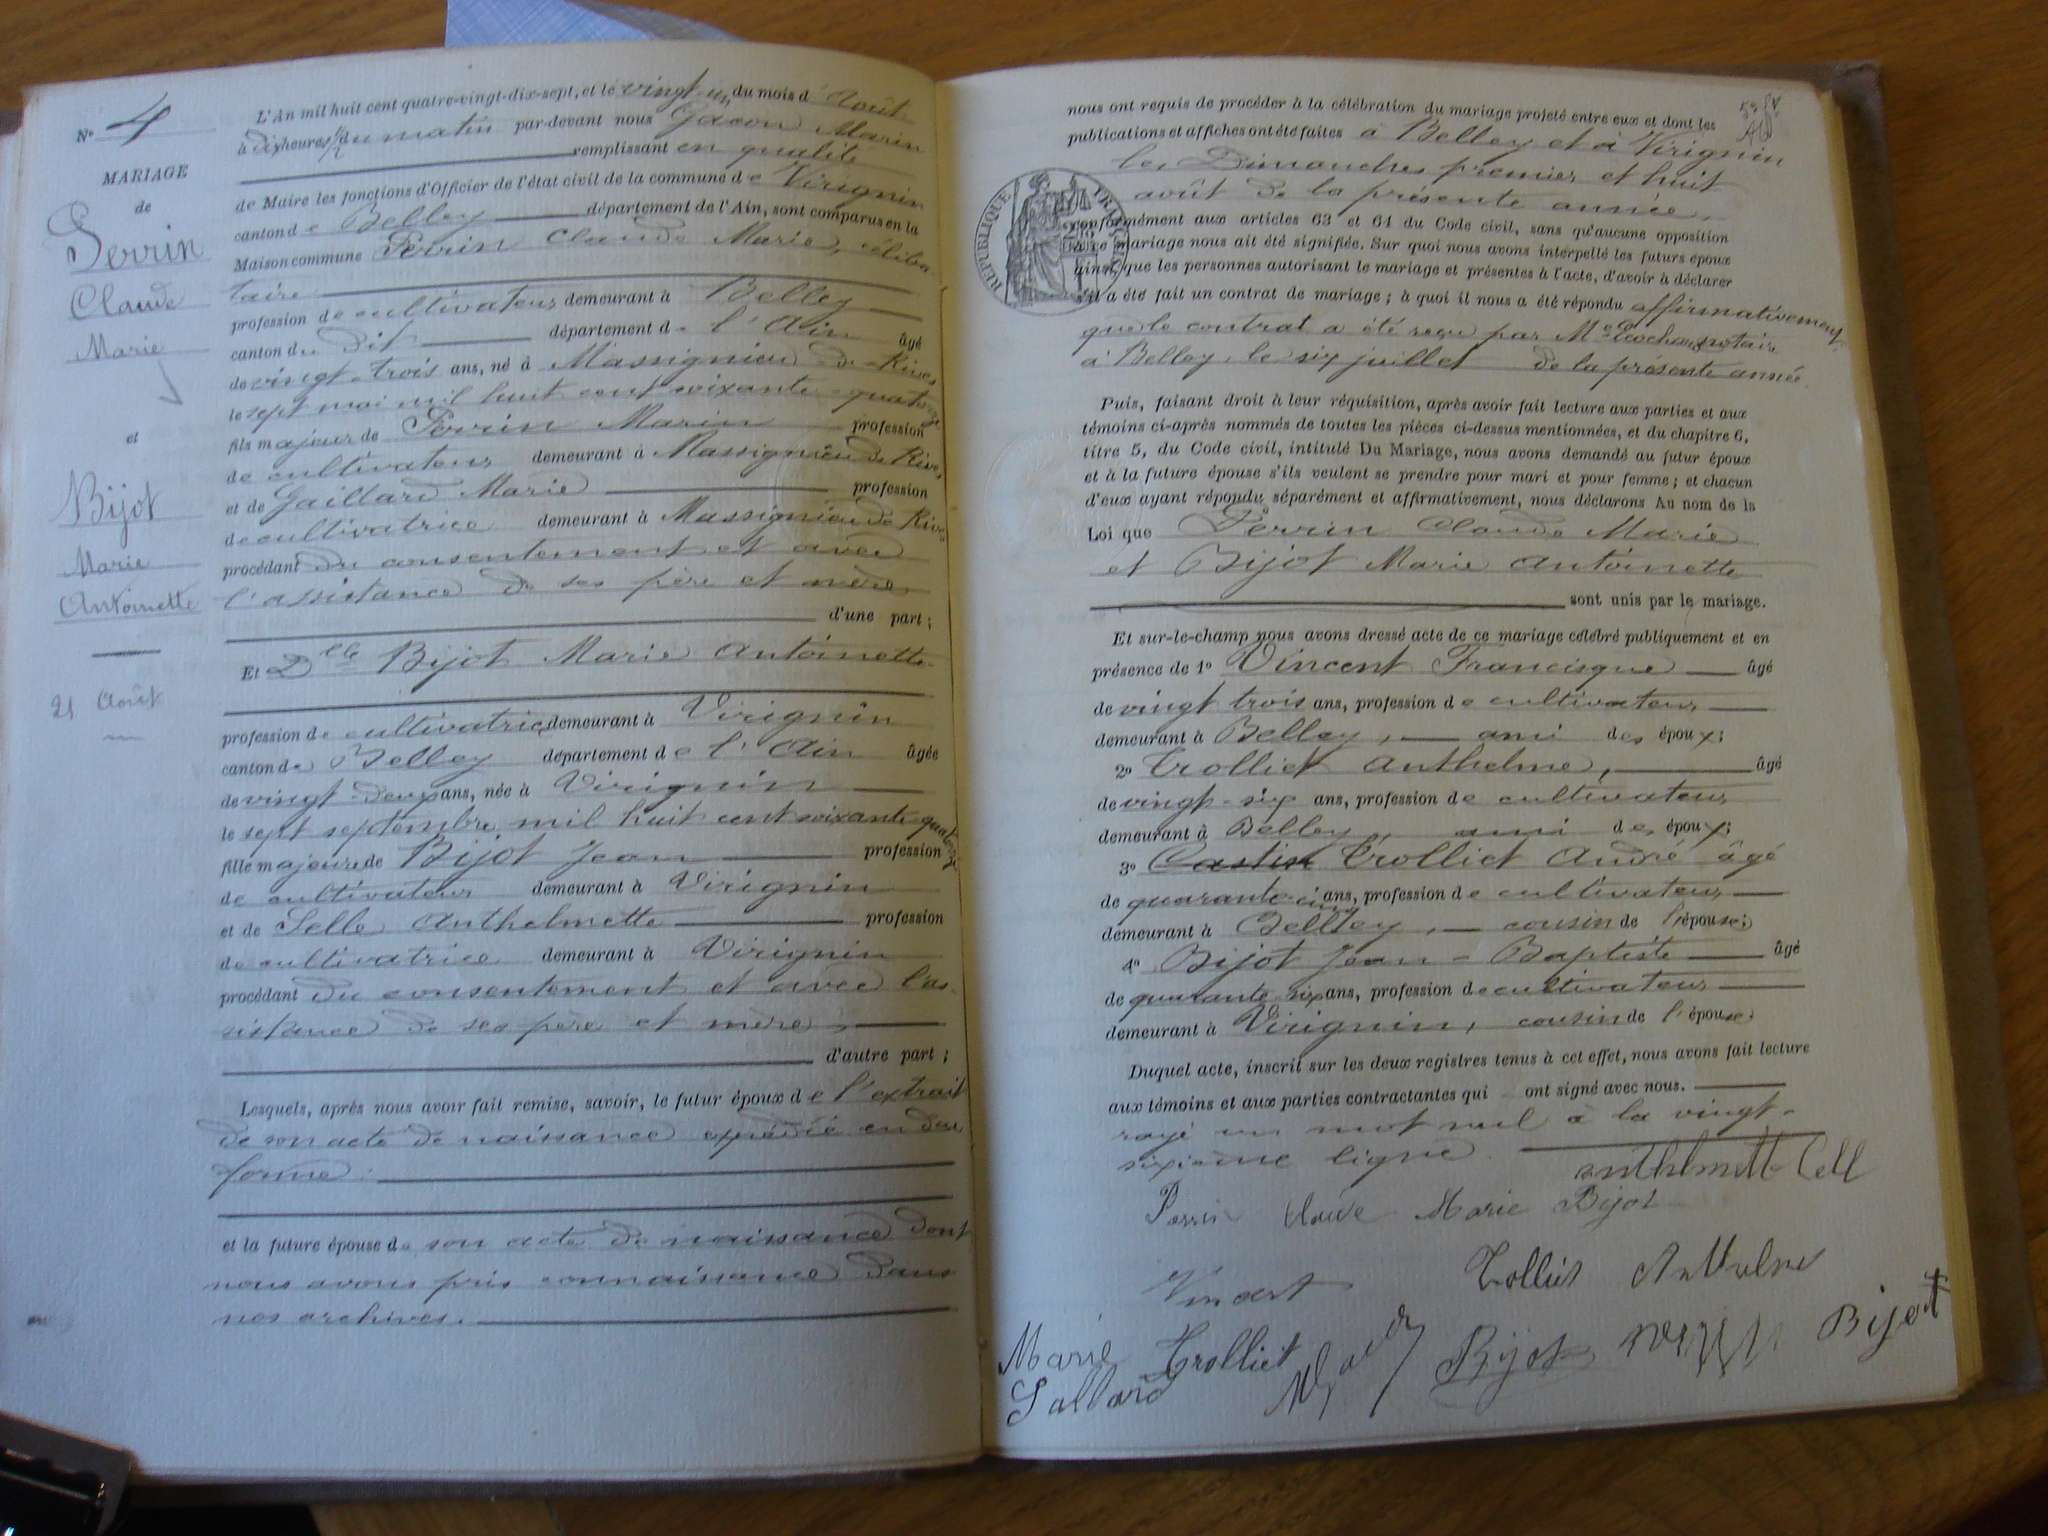 N° 4
MARIAGE
de
Perrin
Claude
Marie
et
Bijot
Marie
Antoinette
21 Août
L'An mil huit cent quatre-vingt-dix-sept, et le vingt-un du mois d'Août
à dix heures 1/2 du matin par-devant nous Gacon Marin
remplissant en qualité
de Maire les fonctions d'Officier de l'état civil de la commune de Virignin
canton de Belley département de l'Ain, sont comparus en la
Maison commune Perrin Claude Marie, céliba
taire
profession de cultivateur demeurant à Belley
canton du dit département de l'Ain âgé
de vingt-trois ans, né à Massignieu-de-Rives
le sept mai mil huit cent soixante-quatorze
fils majeur de Perrin Marin profession
de cultivateur demeurant à Massignieu de Rives
et de Gaillard Marie profession
de cultivatrice demeurant à Massignieu de Rives
procédant du consentement et avec
l'assistance de ses père et mère,
d'une part ;
Et Dlle Bijot Marie Antoinette
profession de cultivatrice demeurant à Virignin
canton de Belley département de l'Ain âgée
de vingt-deux ans, née à Virignin
le sept septembre mil huit cent soixante-quatorze
fille majeure de Bijot Jean profession
de cultivateur demeurant à Virignin
et de Selle Anthelmette profession
de cultivatrice demeurant à Virignin
procédant du consentement et avec l'as-
sistance de ses père et mère,
d'autre part ;
Lesquels, après nous avoir fait remise, savoir, le futur époux de l'extrait
de son acte de naissance expédié en due
forme.
et la future épouse de son acte de naissance dont
nous avons pris connaissance dans
nos archives.
nous ont requis de procéder à la célébration du mariage projeté entre eux et dont les
publications et affiches ont été faites à Belley et à Virignin
les Dimanches premier et huit
août de la présente année,
RÉPUBLIQUE FRANÇAISE
conformément aux articles 63 et 64 du Code civil, sans qu'aucune opposition
à ce mariage nous ait été signifiée. Sur quoi nous avons interpellé les futurs époux
ainsi que les personnes autorisant le mariage et présentes à l'acte, d'avoir à déclarer
s'il a été fait un contrat de mariage ; à quoi il nous a été répondu affirmativement
que le contrat a été reçu par Me notaire
à Belley, le six juillet de la présente année.
Puis, faisant droit à leur réquisition, après avoir fait lecture aux parties et aux
témoins ci-après nommés de toutes les pièces ci-dessus mentionnées, et du chapitre 6,
titre 5, du Code civil, intitulé Du Mariage, nous avons demandé au futur époux
et à la future épouse s'ils veulent se prendre pour mari et pour femme ; et chacun
d'eux ayant répondu séparément et affirmativement, nous déclarons Au nom de la
Loi que Perrin Claude Marie
et Bijot Marie Antoinette
sont unis par le mariage.
Et sur-le-champ nous avons dressé acte de ce mariage célébré publiquement et en
présence de 1° Vincent Francisque âgé
de vingt trois ans, profession de cultivateur,
demeurant à Belley, ami des époux ;
2° Trolliet Anthelme, âgé
de vingt-six ans, profession de cultivateur,
demeurant à Belley, ami des époux ;
3° Castin Trolliet André âgé
de quarante-cinq ans, profession de cultivateur,
demeurant à Belley, cousin de l'épouse ;
4° Bijot Jean-Baptiste âgé
de quarante-six ans, profession de cultivateur
demeurant à Virignin, cousin de l'épouse
Duquel acte, inscrit sur les deux registres tenus à cet effet, nous avons fait lecture
aux témoins et aux parties contractantes qui ont signé avec nous.
rayé un mot nul à la vingt-
sixième ligne.
anthelmette Cell
Perrin Claude Marie Bijot
Vincent Tolliet Anthelme
Marie Trolliet Bijot Bijot
Gallard